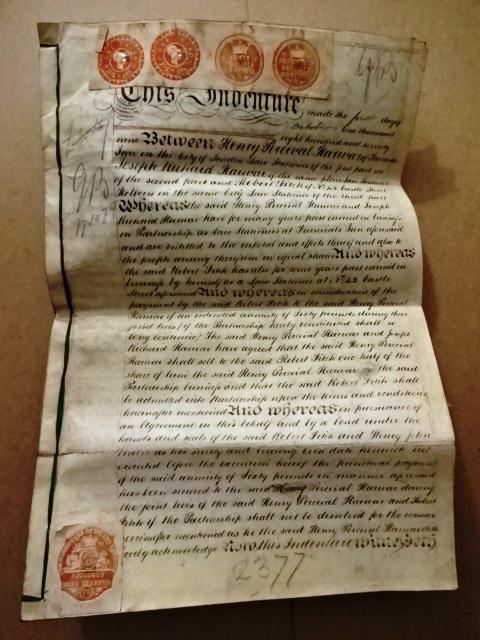 This Indenture made the first day of
October One thousand
eight hundred and ninety
nine Between Henry Percival Harwar of Furnivals
Inn in the City of London Law Stationer of the first part
Joseph Richard Harwar of the same place Law Stationer
of the second part and Robert Fitch of No 42 Castle Street
Holborn in the same City Law Stationer of the third part
Whereas the said Henry Percival Harwar and Joseph
Richard Harwar have for many years past carried on business
in Partnership as Law Stationers at Furnivals Inn aforesaid
and are entitled to the capital and effects thereof and also to
the profits arising therefrom in equal shares And whereas
the said Robert Fitch has also for some years past carried on
business by himself as a Law Stationer at No 42 Castle
Street aforesaid And whereas in consideration of the
payment by the said Robert Fitch to the said Henry Percival
Harwar of an intended annuity of Sixty pounds during their
joint lives (if the Partnership hereby constituted shall so
long continue) The said Henry Percival Harwar and Joseph
Richard Harwar have agreed that the said Henry Percival
Harwar shall sell to the said Robert Fitch one half of the
share of him the said Henry Percival Harwar in the said
Partnership business and that the said Robert Fitch shall
be admitted into Partnership upon the terms and conditions
hereinafter mentioned And whereas in pursuance of
an Agreement in this behalf and by a bond under the
hands and seals of the said Robert Fitch and Henry John
as his surety and bearing even date herewith but
executed before the execution hereof the punctual payment
of the said annuity of Sixty pounds in manner aforesaid
has been secured to the said Henry Percival Harwar during
the joint lives of the said Henry Percival Harwar and Robert
Fitch if the Partnership shall not be dissolved for the reasons
hereinafter mentioned as he the said Henry Percival Harwar doth
hereby acknowledge Now this Indenture witnesseth
2377